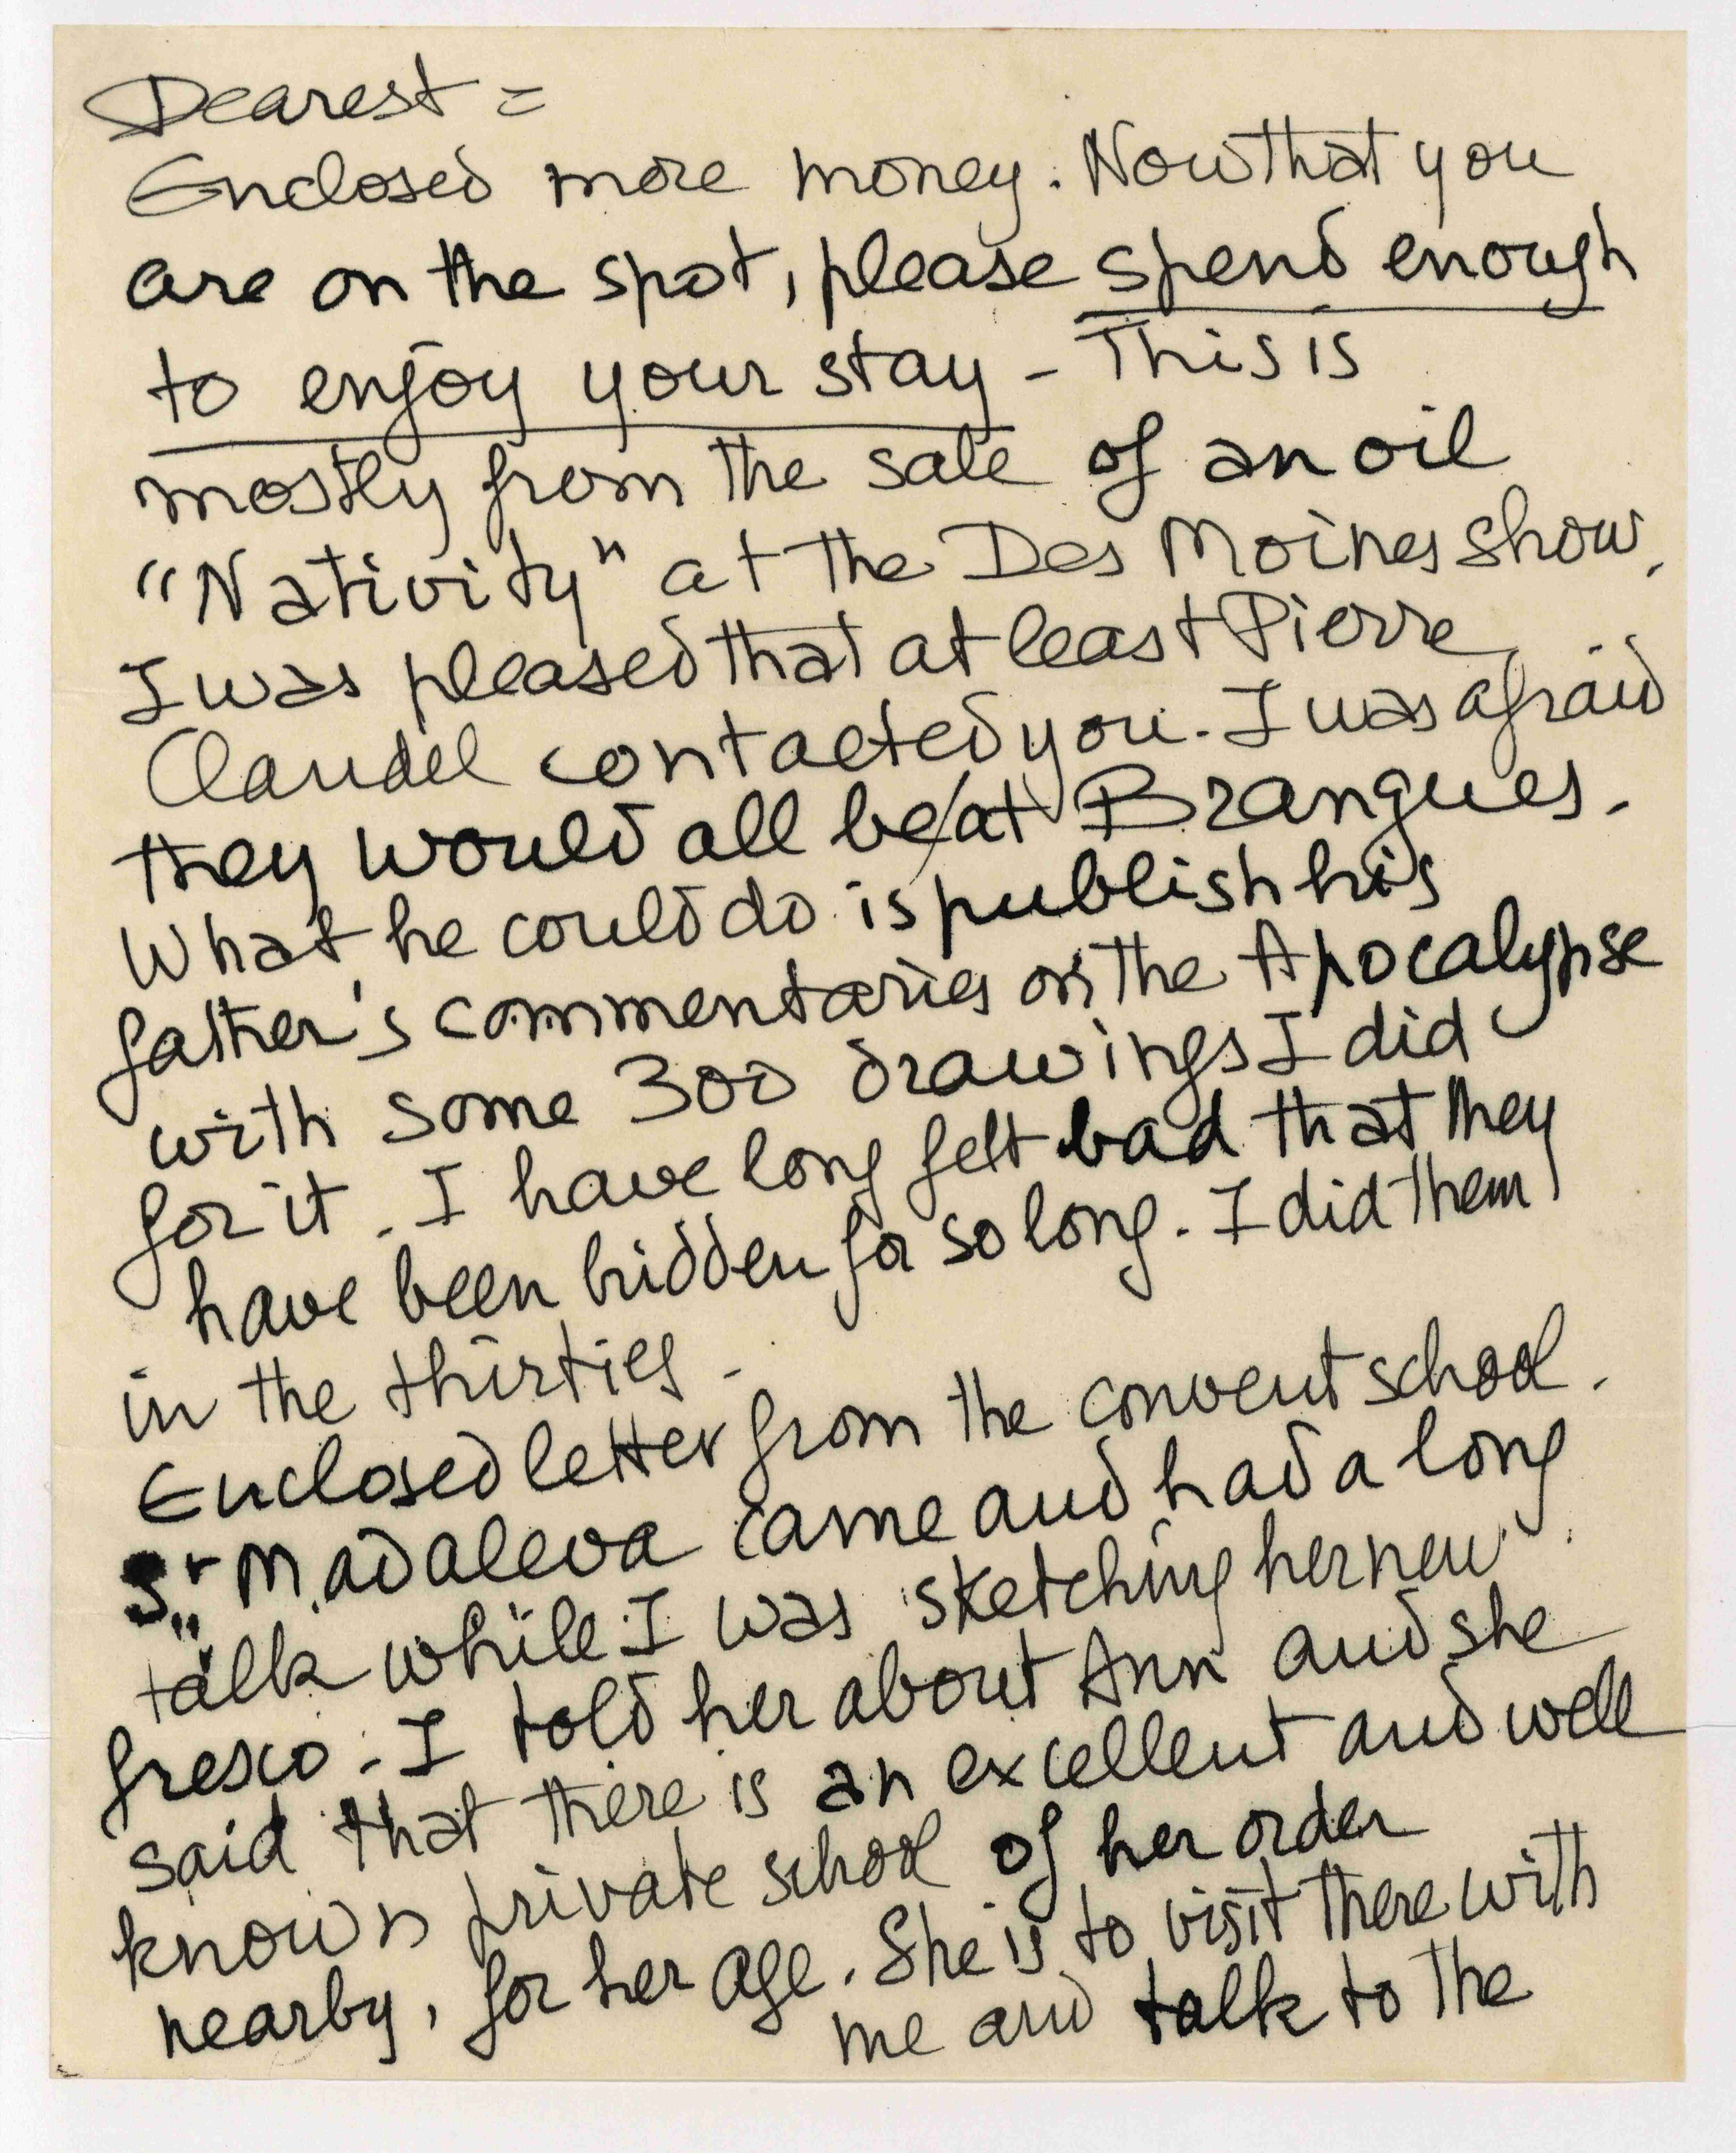 Dearest =
Enclosed more money. Now that you
are on the spot, please spend enough
to enjoy your stay - This is
mostly from the sale of an oil
"Nativity" at the Des Moines show.
I was pleased that at least Pierre
Claudel contacted you. I was afraid
they would all be/at Brangues.
What he could do is publish his
father's commentaries on the Apocalypse
with some 300 drawings I did
for it. I have long felt bad that they
have been hidden for so long. I did them
in the thirties -
Enclosed letter from the convent school.
Sr Madaleva came and had a long
talk while I was sketching her new
fresco. I told her about Ann and she
said that there is an excellent and well
known private school of her order
nearby, for her age. She is to visit there with
me and talk to the